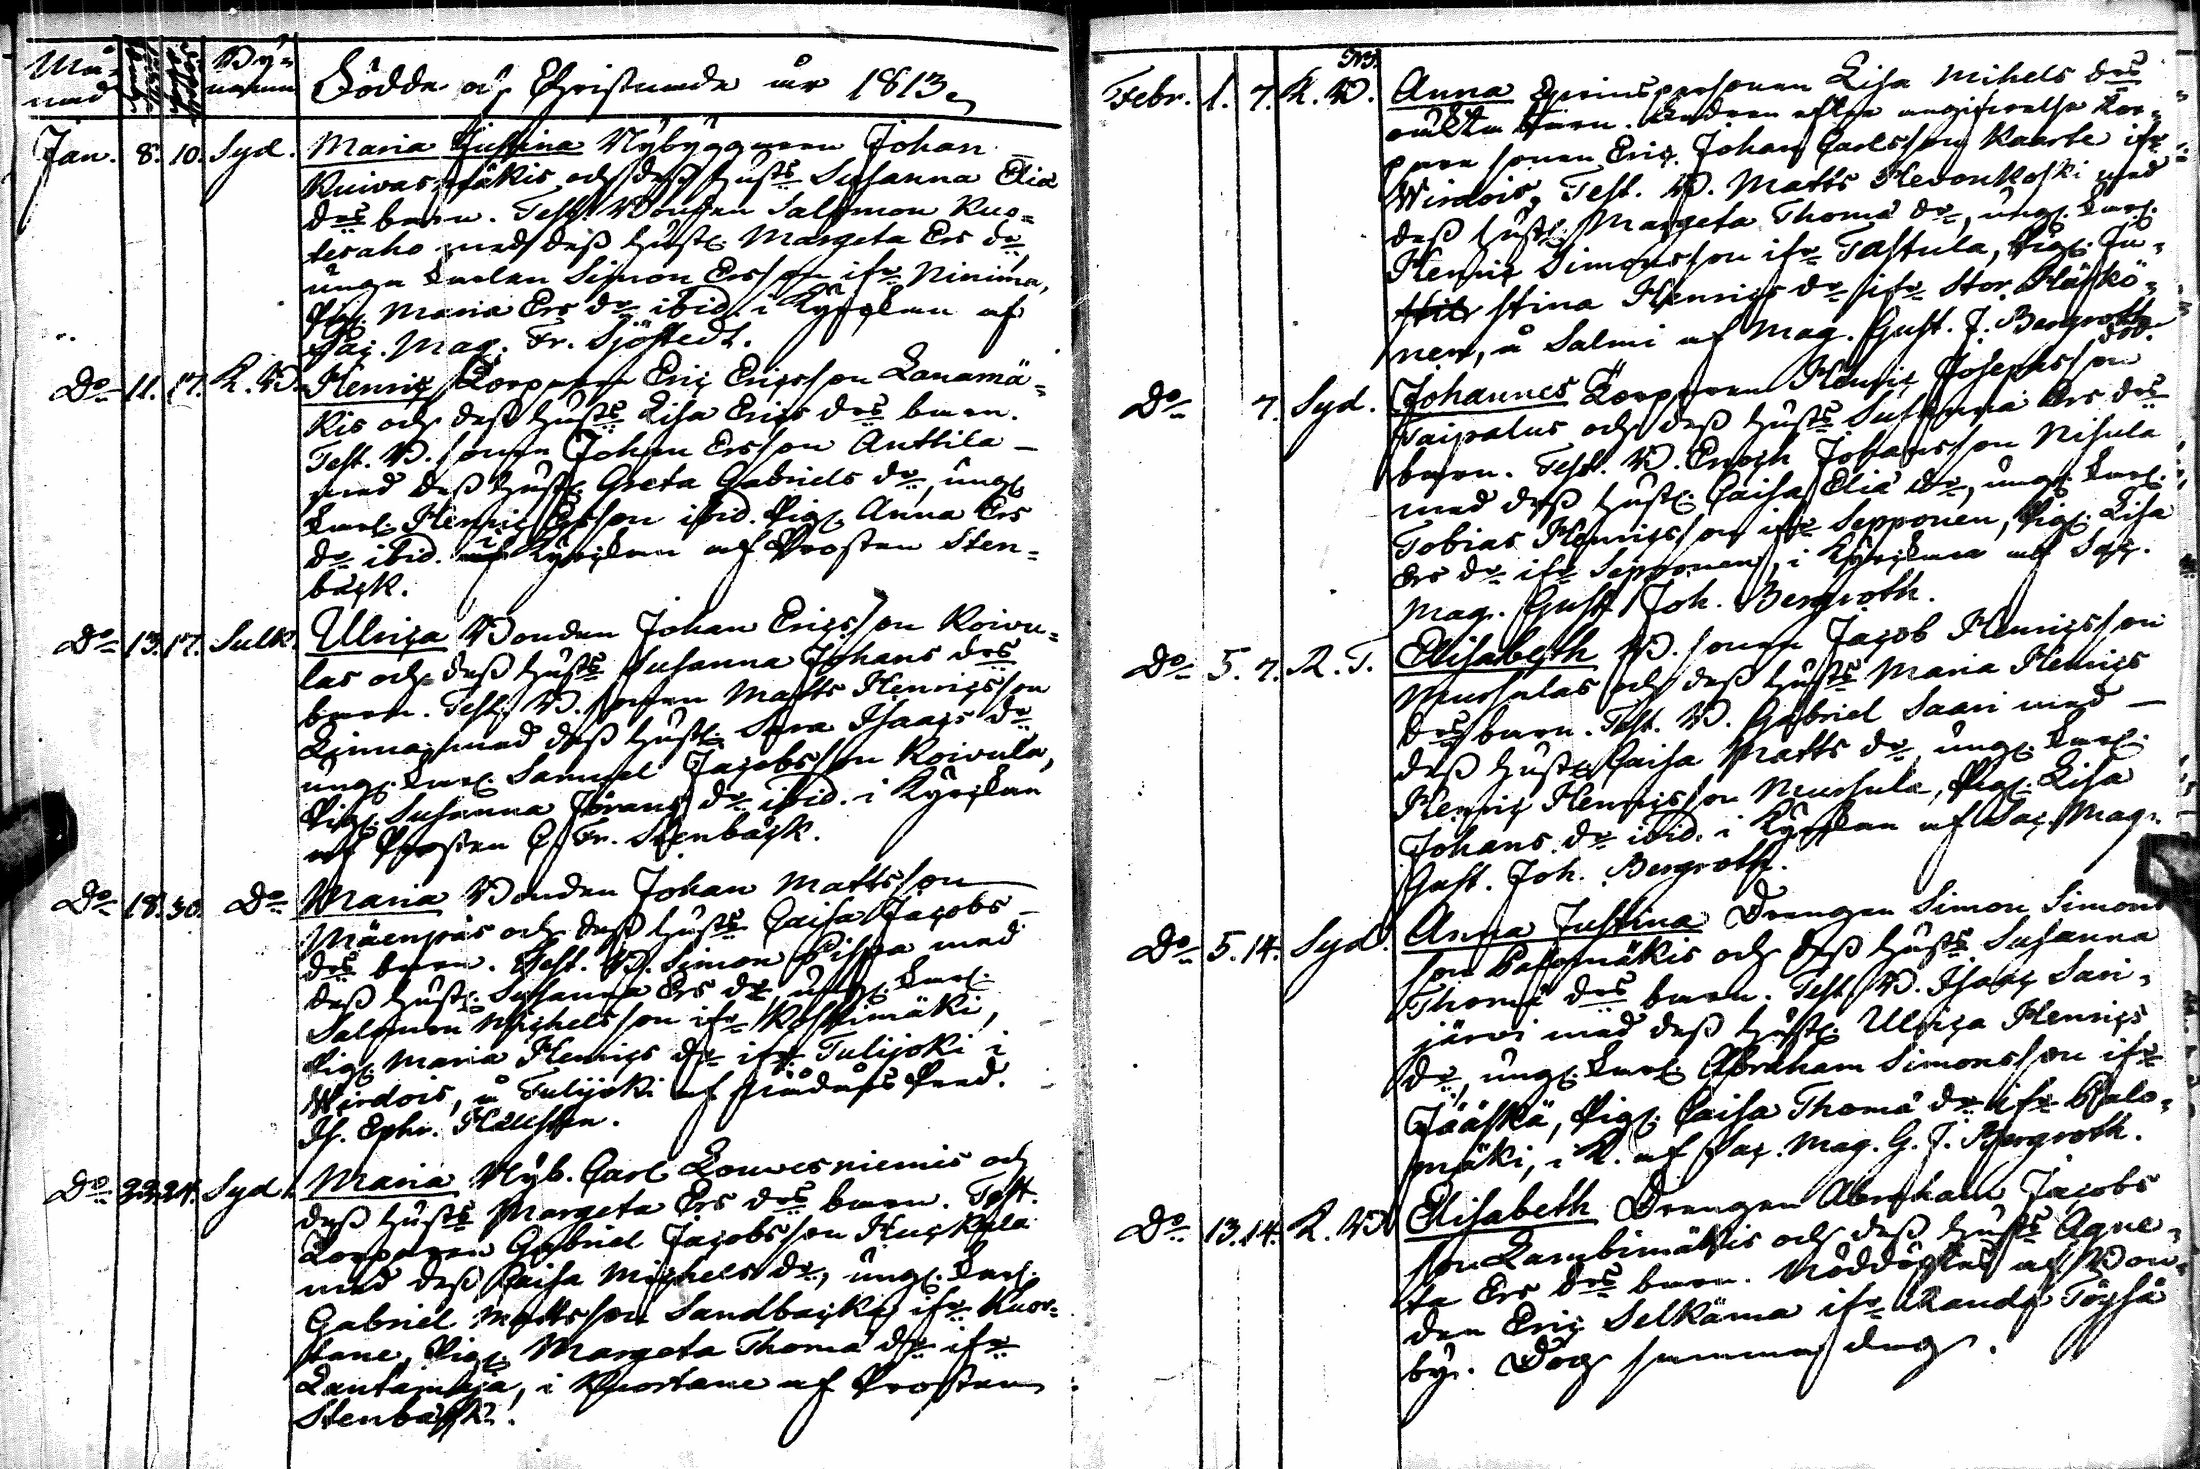 Må-
nad
Byₑ
namn
Födde och Christnade år 1813.
Jan. 8. 10. Syd. Maria Justina Nybyggaren Johan
Kuivasmäkis och dess hust:s Susanna Eliæ
drs barn. Test. Bonden Salomon Kuo=
tesaho med dess hustr. Margeta Ers dr,
unga karlen Simon Ersson ifr. Ninima,
Pig. Maria Ers dr ibid. i Kyrckan af
Sac. Mag. Fr. Sjöstedt.
Do 11. 17. K. B. Henric Torparen Eric Ericsson Lanamä=
kis och dess hust:s Lisa Erics drs barn.
Test. B. sonen Johan Ersson Anttila
med dess hustr. Greta Gabriels dr, ung.
karl. Henric Ersson ibid. Pig. Anna Ers
dr ibid. i Kyrckan af Prosten Sten=
bäck.
Do 13. 17. Sulk. Ulrica Bonden Johan Ericsson Koivu=
las och dess hust:s Susanna Johans drs
barn. Test. B. sonen Matts Henricsson
Linna, med dess hustr. Sara Isaacs dr
ung. karl. Samuel Jacobsson Koivula,
Pig. Susanna Jörans dr ibid. i Kyrckan
af Prosten C. Fr. Stenbäck.
Do 18. 30. Do Maria Bonden Johan Mattsson
Mäenpäs och dess hust:s Caisa Jacobs
drs barn. Test. B. Simon Pispa med
dess hustr. Susanna Ers dr, ung. karl.
Salomon Michelsson ifr. Koskimäki,
Pig. Maria Henrics dr ifr. Tulijoki i
Wirdois, å Tulijoki af Pred.
Is. Ephr.
Do 22. 24. Syd. Maria Nyb. Carl Louvesniemis och
dess hust:s Margeta Ers drs barn. Test.
Torparen Gabriel Jacobsson Huckala
med dess Caisa Michels dr, ung. karl.
Gabriel Mattsson Sandbacka ifr. Kuor=
tane, Pig. Margeta Thomæ dr ifr.
Lantamaja, i Kuortane af Prosten
Stenbäck.
Febr. 1. 7. K. B. Anna Lisa Mihels drs
oäkta barn. Fadren efter angifvelse Tor=
pare sonen Eric Johan Carlsson Kaarte ifr.
Wirdois, Test. B. Matts Hevonkoski med
dess hustr. Margeta Thomæ dr, ung. karl.
Henric Simonsson ifr. Tastula, Pig. Ju=
stina Henrics dr ifr. Stor Häskö=
nen, å Salmi af Mag. Gust. J. Bergroth
Do 7. Syd. Johannes Torparen Henric Josephsson
Taipalus och dess hust:s Susanna Ers drs
barn. Test. B. Enoch Johansson Nisula
med dess hustr. Caisa Eliæ dr, ung. karl.
Tobias Henricsson ifr. Sepponen, Pig. Lisa
Ers dr ifr. Sepponen, i Kyrckan af Sac.
Mag. Gust. Joh. Bergroth.
Do 5. 7. R. T. Elisabeth B. sonen Jacob Henricsson
Mursulas och dess hust:s Maria Henrics
drs barn. Test. B. Gabriel Saari med
dess hustr. Caisa Matts dr, ung. karl.
Henric Henricsson Mursula, Pig. Lisa
Johans dr ibid. i Kyrckan af Sac. Mag.
Gust. Joh. Bergroth.
Do 5. 14. Syd. Anna Justina Drengen Simon Simons
son Palomäkis och dess hust:s Susanna
Thomæ drs barn. Test. B. Isaac Sari=
järvi med dess hustr. Ulrica Henrics
dr, ung. karl. Abraham Simonsson ifr.
Jääskä, Pig. Caisa Thomæ dr ifr. Palo=
mäki, i K. af Sac. Mag. G. J. Bergroth.
Do 13. 14. K. B. Elisabeth Drengen Abraham Jacobs
son Lambimäkis och dess hust:s Agne=
ta Ers drs barn. Nöddöptes af Bon=
den Eric Selkäma ifr. Randa Töysä
by. Dog samma dag.